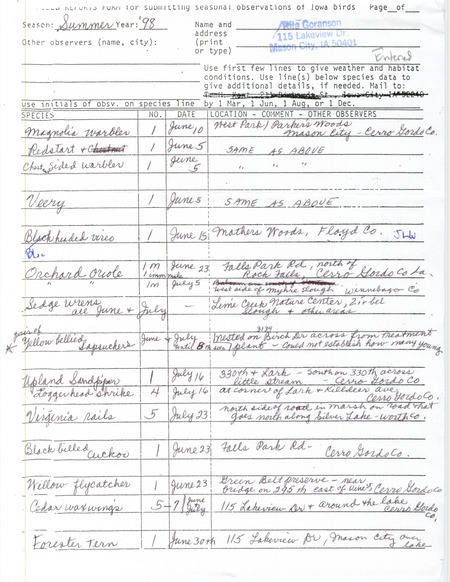 FIELD REPORTS FORM for submitting seasonal observations of Iowa birds Page__of__
Season: Summer Year: '98
Name and address (print or type)
Rita Goranson
115 Lakeview Dr.
Mason City, IA 50401
Other observers (name, city):
Entered
Use first few lines to give weather and habitat
conditions. Use line(s) below species data to
give additional details, if needed. Mail to:
Iowa City IA 52240
use initials of obsv. on species line by 1 Mar, 1 Jun, 1 Aug, or 1 Dec.
SPECIES NO. DATE LOCATION - COMMENT - OTHER OBSERVERS
Magnolia warbler 1 June 10 West Park/Parkers Woods
Mason City - Cerro Gordo Co.
Redstart & Chestnut 1 June 5 SAME AS ABOVE
Chest. sided warbler 1 June 5 " " "
Veery 1 June 5 SAME AS ABOVE
Blackheaded vireo 1 June 15 Mothers Woods, Floyd Co. JLW
Blue
Orchard Oriole 1 m June 23 Falls Park Rd, north of
1 imm male Rock Falls, Cerro Gordo Co Ia.
1m July 5
west side of Myhre Slough - Winnebago Co
Sedge wrens June & July - Lime Creek Nature Center, Zirbel
are Slough & other areas
* pair of Yellow bellied Sapsuckers June & July until 8th Nested on Birch Dr across from treatment
plant - could not establish how many young
Upland Sandpiper 1 July 16 330th & Lark - South on 330th across
little stream - Cerro Gordo Co
Loggerhead Shrike 4 July 16 at corner of Lark & Killdeer Ave
Cerro Gordo Co.
Virginia rails 5 July 23 north side of road in marsh on road that
goes north along Silver Lake - Worth Co.
Black billed Cuckoo 1 June 23 Falls Park Rd - Cerro Gordo Co.
Willow flycatcher 1 June 23 Green Belt preserve - near
bridge on 295th east of Vine, Cerro Gordo Co
Cedar waxwings 5-7 June July 115 Lakeview Dr & around the lake
Cerro Gordo Co,
Forester Tern 1 June 30th 115 Lakeview Dr, Mason City over
lake